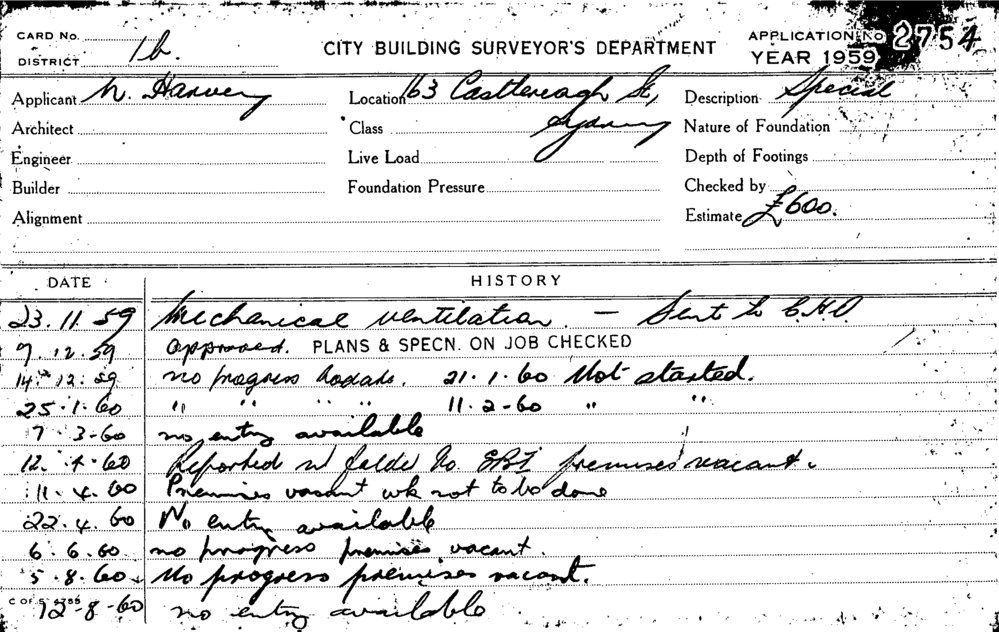 CARD No.
DISTRICT 1b.
CITY BUILDING SURVEYOR'S DEPARTMENT
APPLICATION No 2754
YEAR 1959
Applicant N. Harvey Location 163 Castlereagh St, Description Special
Architect Class Sydney Nature of Foundation
Engineer Live Load Depth of Footings
Builder Foundation Pressure Checked by
Alignment Estimate £600.
DATE HISTORY
23.11.59 Mechanical ventilation. — Sent to C.H.O.
9.12.59 approved. PLANS & SPECN. ON JOB CHECKED
14.12.59 no progress 21.1.60 Not started.
25.1.60 " " " " 11.2-60 " "
7.3-60 no entry available
12.4.60 Reported premises vacant.
11.4.60 Premises vacant wk not to be done
22.4.60 No entry available
6.6.60 no progress premises vacant.
5.8.60 No progress premises vacant.
C OF S 4755 12-8-60 no entry available